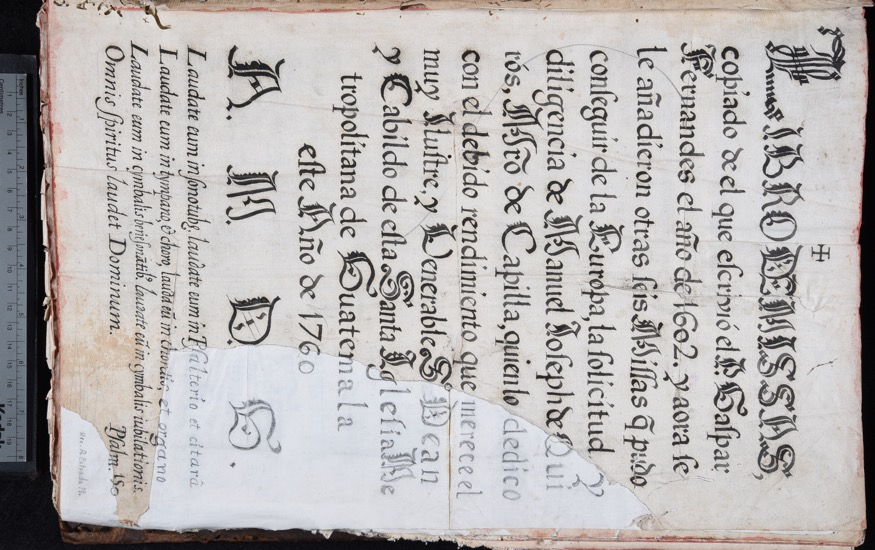 ✠
LIBRO DE MISSAS,
copiado de el que escrivió el P. Gaspar
Fernandes el año de 1602. y aora se
le añadieron otras seis Missas q̃ pudo
conseguir de la Europa, la solicitud, y
diligencia de Manuel Joseph de Qui
rós, Mr̃o de Capilla, quien lo dedico
con el debido rendimiento que merece el
muy Ilustre, y Venerable Sr. Dean
y Cabildo de esta Santa Iglesia Me
tropolitana de Guatemala
este Año de 1760
A. M. D. G.
Laudate eum in sono tubę, laudate eum in Psalterio et citarâ
Laudate eum in tympano, & choro, lauda eũ in chordis, et organo
Laudate eum in cymbalis benesonãtib9, laudate eũ in cymbalis iubilationis.
Omnis spiritus laudet Dominum. Psalm. 150